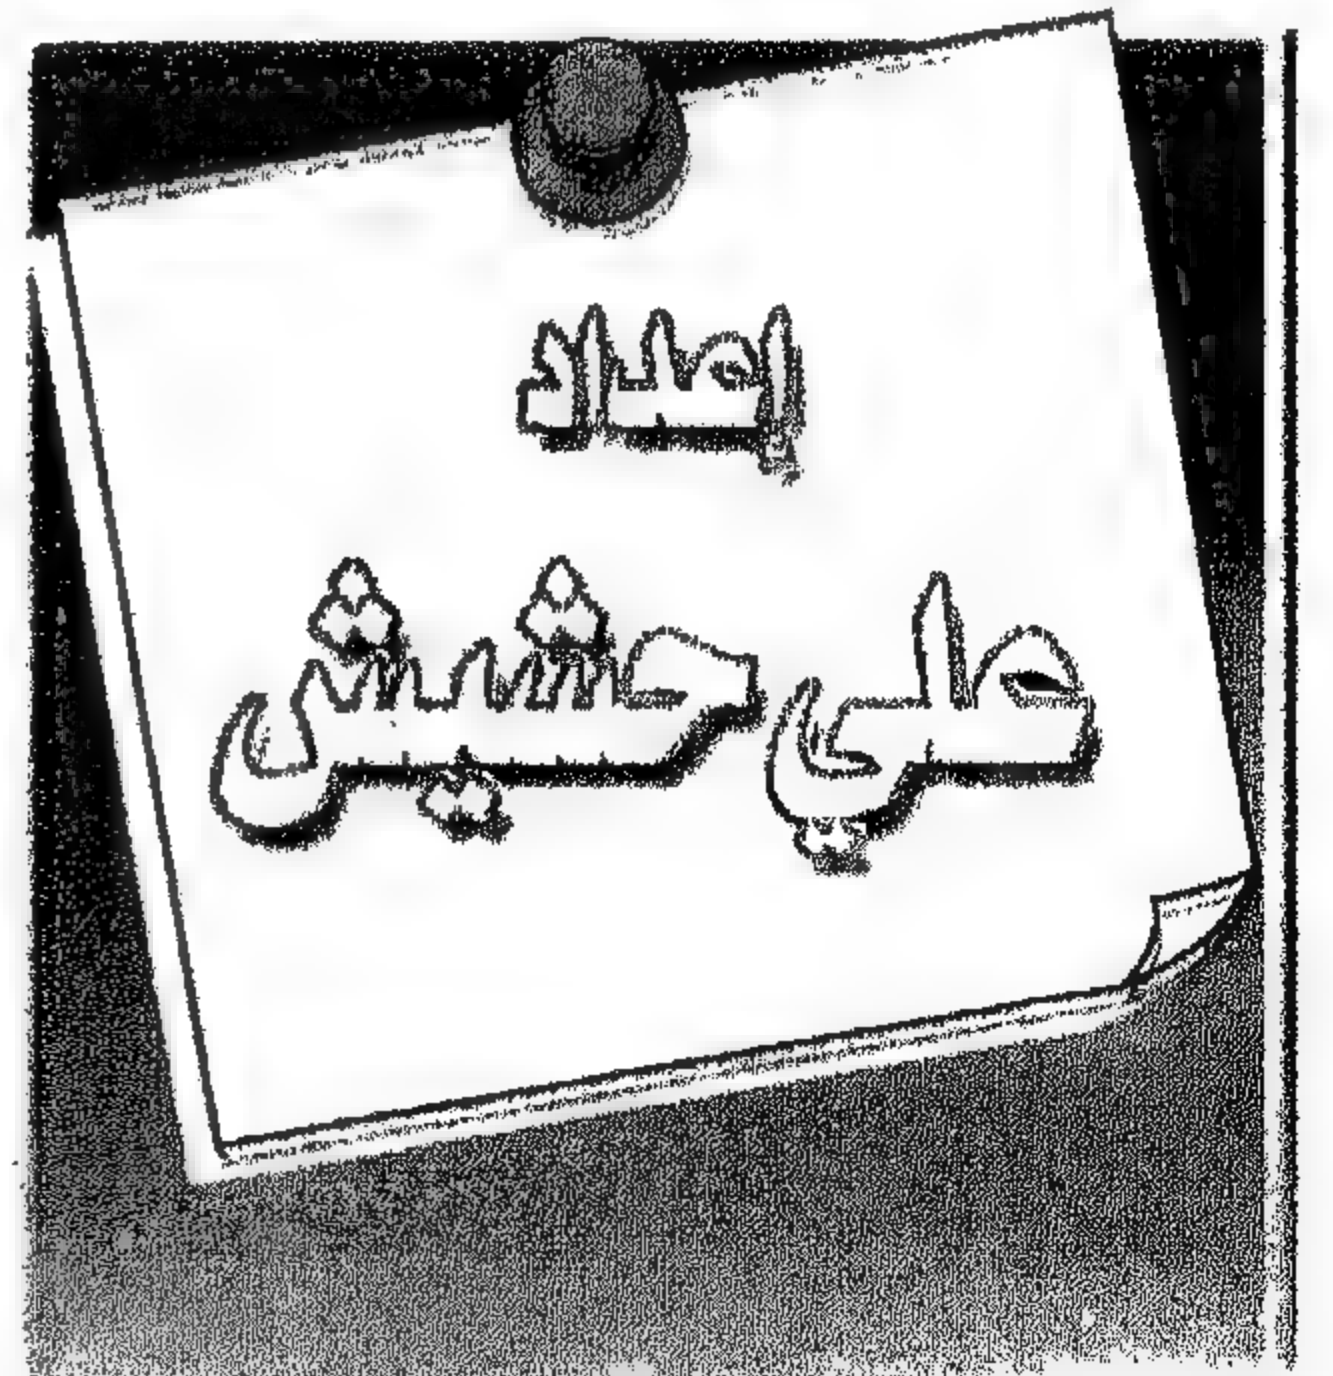 إعداد
علي حشيش